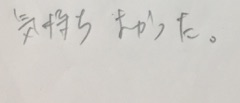 気持ちよかった。